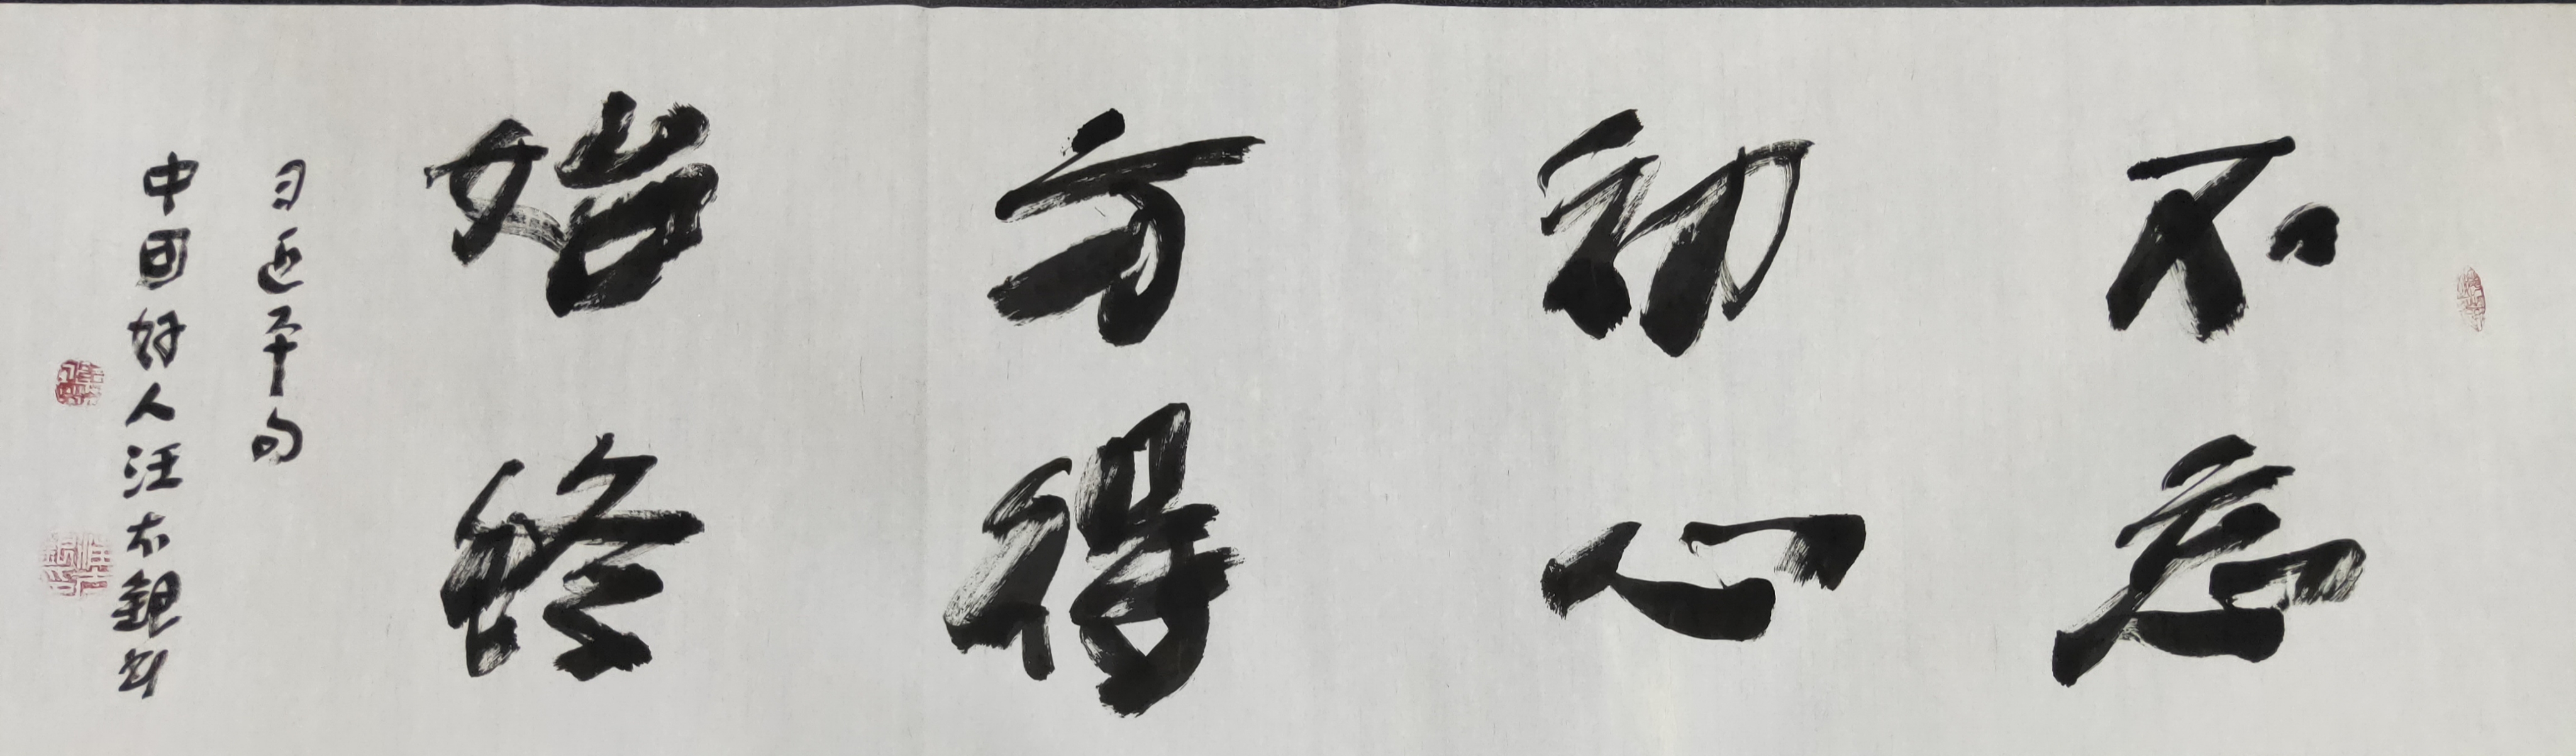 不忘
初心
方得
始终
习近平句
中国好人汪太银书